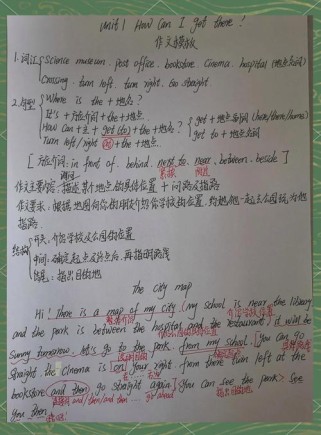 Unit 1 How Can I get there?
作文模板
1.词汇 Science museum. post office. bookstore. Cinema. hospital (地点名词)
Crossing. turn left. turn right. Go straight
2.句型 Where is the +地点?
It's +方位介词+the+地点.
How can +主+ get (to) +the+地点? get+地点副词 (here/there/home)
Turn left/right at the+地点. get to +地点名词
[方位介词: in front of. behind. next to. near. between. beside]
紧挨 附近
作文主要内容: 描述某个地点的具体位置 + 问路及指路
作文要求: 根据地图向你的朋友介绍你学校的位置.
指路.
结构 开头: 介绍学校及公园的位置
中间: 确定起点及终点, 再指明路线
结尾: 指出目的地
The city map
Hi! There is a map of my city. My school is near the library
介绍学校位置
and the park is between the hospital and the restaurant. It will be
Sunny tomorrow. Let's go to the park from my school. You can go
Straight. the Cinema is on your right. from there turn left at the
bookstore and then go straight again. You can see the park. See
and/then/and then... go ahead 指出目的地
You then.